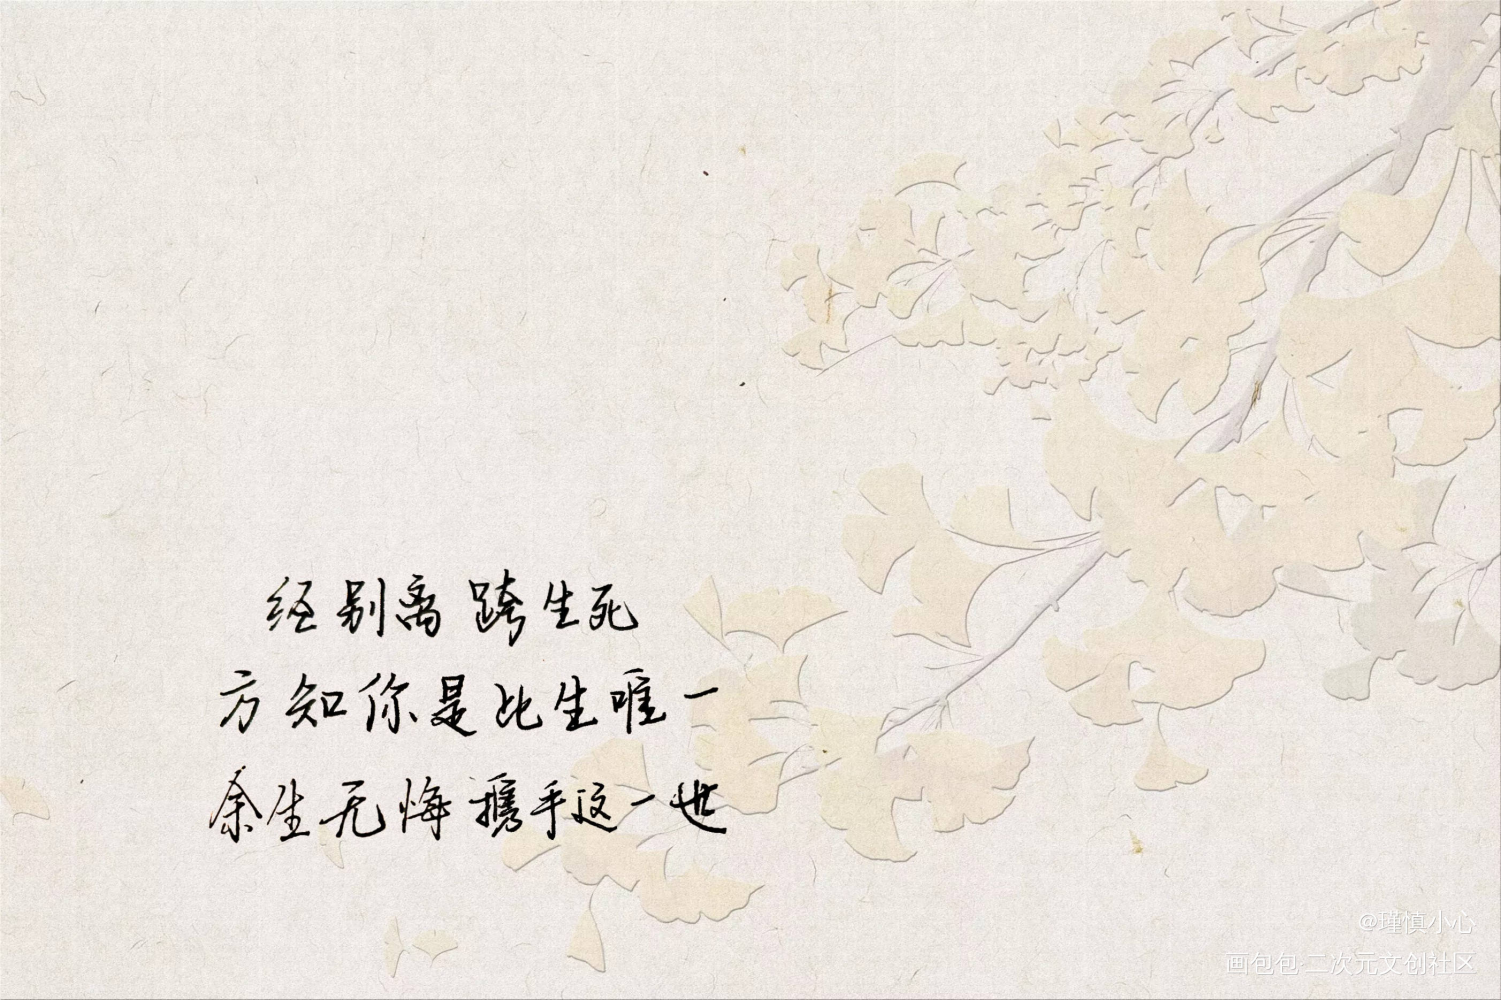 经别离 跨生死
方知你是此生唯一
余生无悔 携手这一世
@瑾慎小心
画包包·二次元文创社区